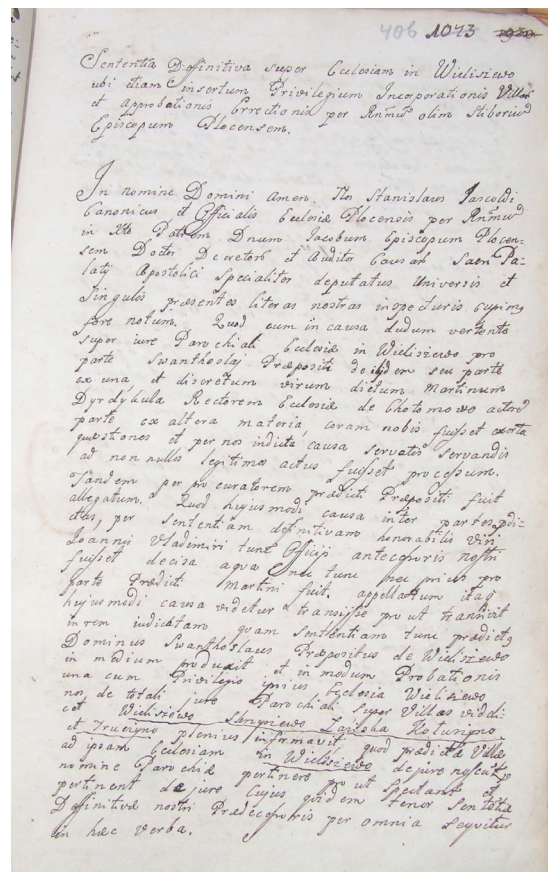 406 1043 930
Sententia Diffinitiva super Ecclesiam in Wieliszewo
ubi etiam insertum Privilegium Incorporationis Villar
et Approbationis Errectionis per Rñdmũ olim Stiborium
Episcopum Plocensem.
In nomine Domini Amen. Nos Stanislaus Jascoldi
Canonicus et Officialis Ecclesiæ Plocensis per Rñmũ
in Xto Patrem Dnum Jacobum Episcopum Plocen-
sem Doctor Decretor et Auditor Causar Sacri Pa-
latij Apostolici Specialiter deputatus Universis et
Singulis præsentes literas nostras inspecturis cupimg
fore notum. Quod cum in causa dudum vertente
super iure Parochiali Ecclesiæ in Wieliszewo pro
parte Swanthoslaj Præpositi de ibidem seu parte
ex una et discretum virum dictum Martinum
Dyrdykula Rectorem Ecclesiæ de Chotomowo actore
parte ex altera materia, coram nobis fuisset exorta
quæstiones et per nos indicta causa servatis servandis
ad non nullos legitimos actus fuisset processum.
Tandem per procuratorem prædicti Præpositi fuit
allegatum. Quod hujusmodi causa inter partes pdi-
ctas, per Sententiam definitivam honorabilis viri
Joannis Vladimiri tunc Officij antecessoris nostri
fuisset decisa a qua nec tunc nec prius pro
parte Prædicti Martini fuit, appellatum itaq
hujusmodi causa videtur transisse pro ut transivit
in rem iudicatam quam sententiam tunc prædictg
Dominus Swanthoslaus Præpositus de Wieliszewo
in medium produxit et in modum Probationis
una cum Privilegio ipsius Ecclesia Wieliszewo
nos de totali jure Parochiali super Villas videli-
cet Wieliszewo Łaiyska Kotunyno
et plenius informavit, quod prædictæ Villæ
ad ipsam Ecclesiam in Wieliszewo de jure
nomine Parochiæ pertinere pro ut spectant et
pertinent de jure Cujus quidem tenor Sententiæ
Diffinitivæ nostri Prædecessoris per omnia sequitur
in hæc verba.